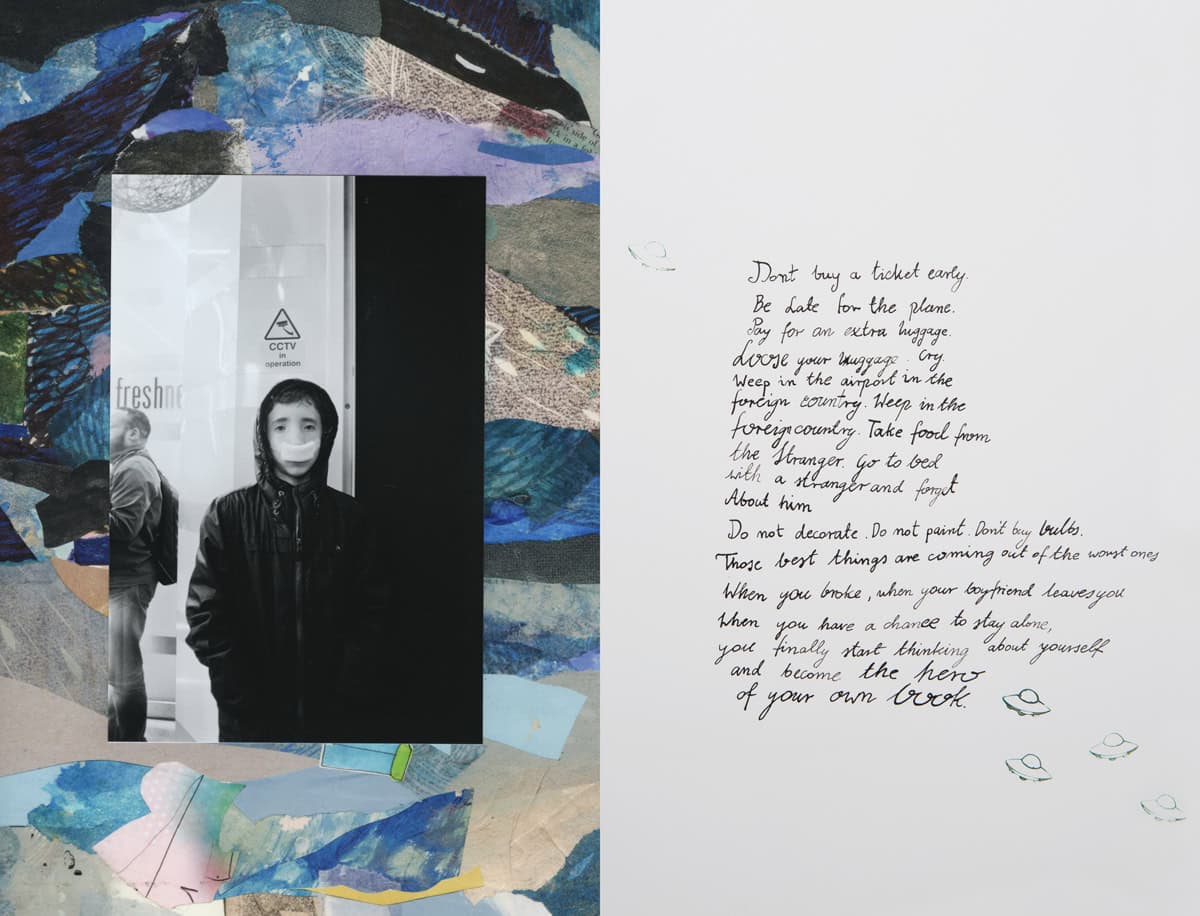 side of
ck in a
CCTV
in
operation
freshne
Dont buy a ticket early.
Be Late for the plane.
Pay for an extra luggage.
Loose your luggage. Cry.
Weep in the airport in the
foreign country. Weep in the
foreign country. Take food from
the Stranger. Go to bed
with a stranger and forget
About him
Do not decorate. Do not paint. Don't buy bulbs.
Those best things are coming out of the worst ones
When you broke, when your boyfriend leaves you
When you have a chance to stay alone,
you finally start thinking about yourself
and become the hero
of your own book.